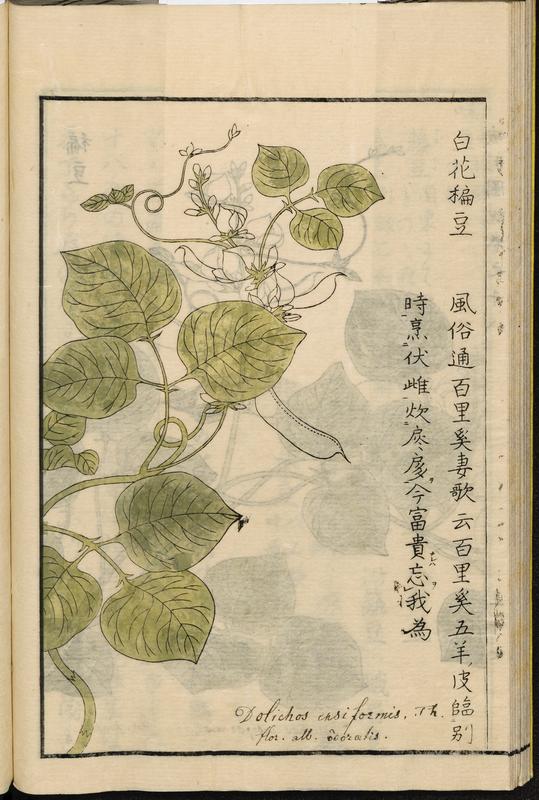 白花稨豆
風俗通百里奚妻歌云百里奚五羊皮臨别
時烹伏雌炊扊扅今富貴忘我為
Dolichos ensiformis. Th.
flor. alb.